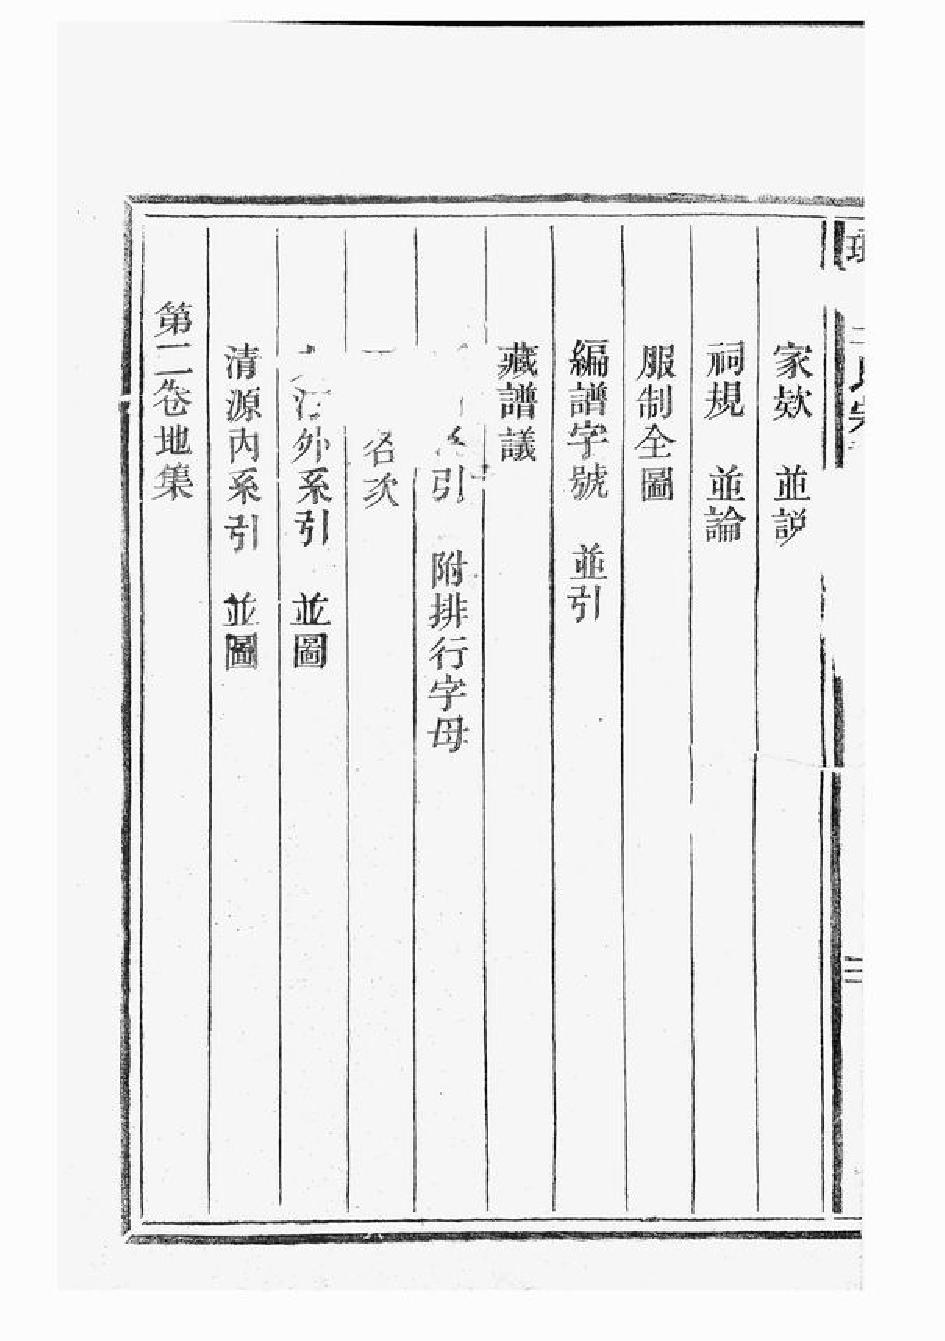 家欵　並説
祠規　並論
服制全圖
編譜字號　並引
藏譜議
引　附排行字母
名次
外系引　並圖
清源內系引　並圖
第二卷地集